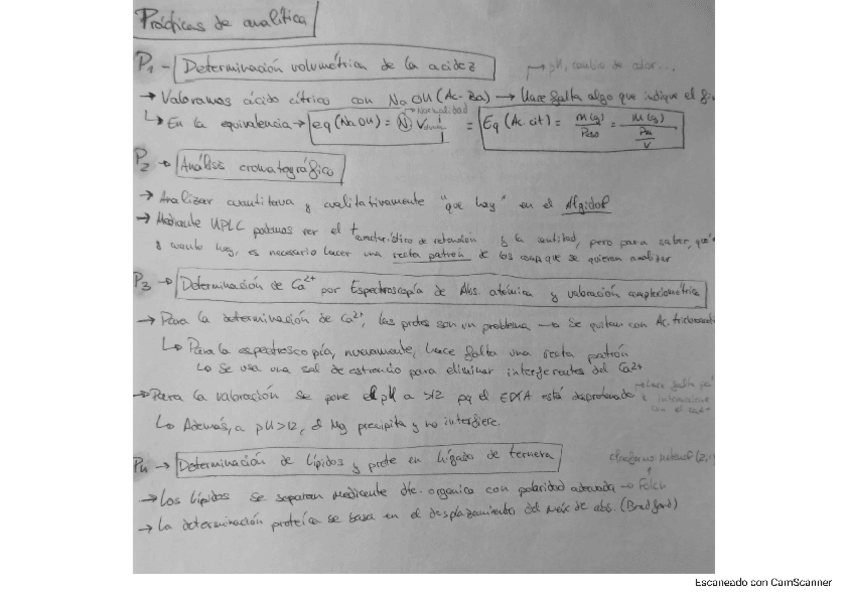 Prácticas de analítica
P1 - Determinación volumétrica de la acidez → pH, cambio de color...
→ Valoramos ácido cítrico con NaOH (Ac-Ba) → Hace falta algo que indique el
↳ En la equivalencia → eq (NaOH) = N V = Eq (Ac. cit) = m(g)/Peso = m(g)/(Pm/V)
Normalidad
P2 → Análisis cromatográfico
→ Analizar cuantitativa y cualitativamente "que hay" en el Algidol
→ Mediante UPLC podemos ver el t característico de retención y la cantidad, pero para saber, qué
y cuanto hay, es necesario hacer una recta patrón de los comp que se quieran analizar
P3 → Determinación de Ca2+ por Espectroscopía de Abs. atómica y valoración complexiométrica
→ Para la determinación de Ca2+, las protes son un problema → Se quitan con Ac.
↳ Para la espectroscopía, nuevamente, hace falta una recta patrón
↳ Se usa una sal de estroncio para eliminar interferentes del Ca2+
→ Para la valoración se pone el pH a >12 pq el EDTA está desprotonado
↳ Además, a pH>12, el Mg precipita y no interfiere.
P4 → Determinación de lípidos y prote en hígado de ternera
cloroformo metanol (2,
→ Los lípidos se separan mediante dte. organico con polaridad adecuada → Folch
→ La determinación proteíca se basa en el desplazamiento del máx de abs. (Bradford)
Escaneado con CamScanner